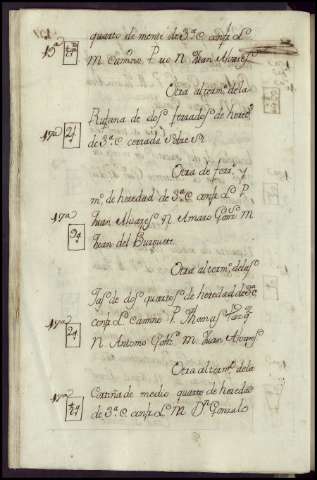 quarto de mente de 3ª C confª L
M camino P rio N Juan Alvares
Otra al termº de la
Rufana de dos ferrados de hered
de 3ª C cerrada sobre si
Otra de ferrº y
mº de heredad de 3ª C confª L P
Juan Alvares N Amaro Gonz M
Juan del Busquete
Otra al termº de las
Jas de dos quartos de heredad de 3ª C
confª L camino P Thomas
N Antonio Gonz M Juan Alvares
Otra al termº de la
Cortiña de medio quarto de heredad
de 3ª C confª L M Dn Gonzalo